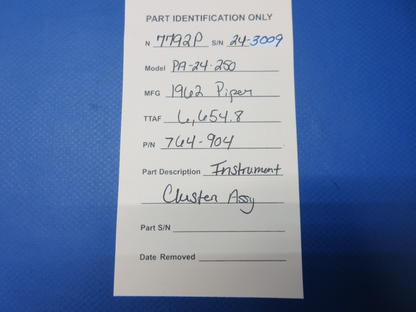 PART IDENTIFICATION ONLY
N 7792P S/N 24-3009
Model PA-24-250
MFG 1962 Piper
TTAF 6,654.8
P/N 764-904
Part Description Instrument
Cluster Assy
Part S/N
Date Removed